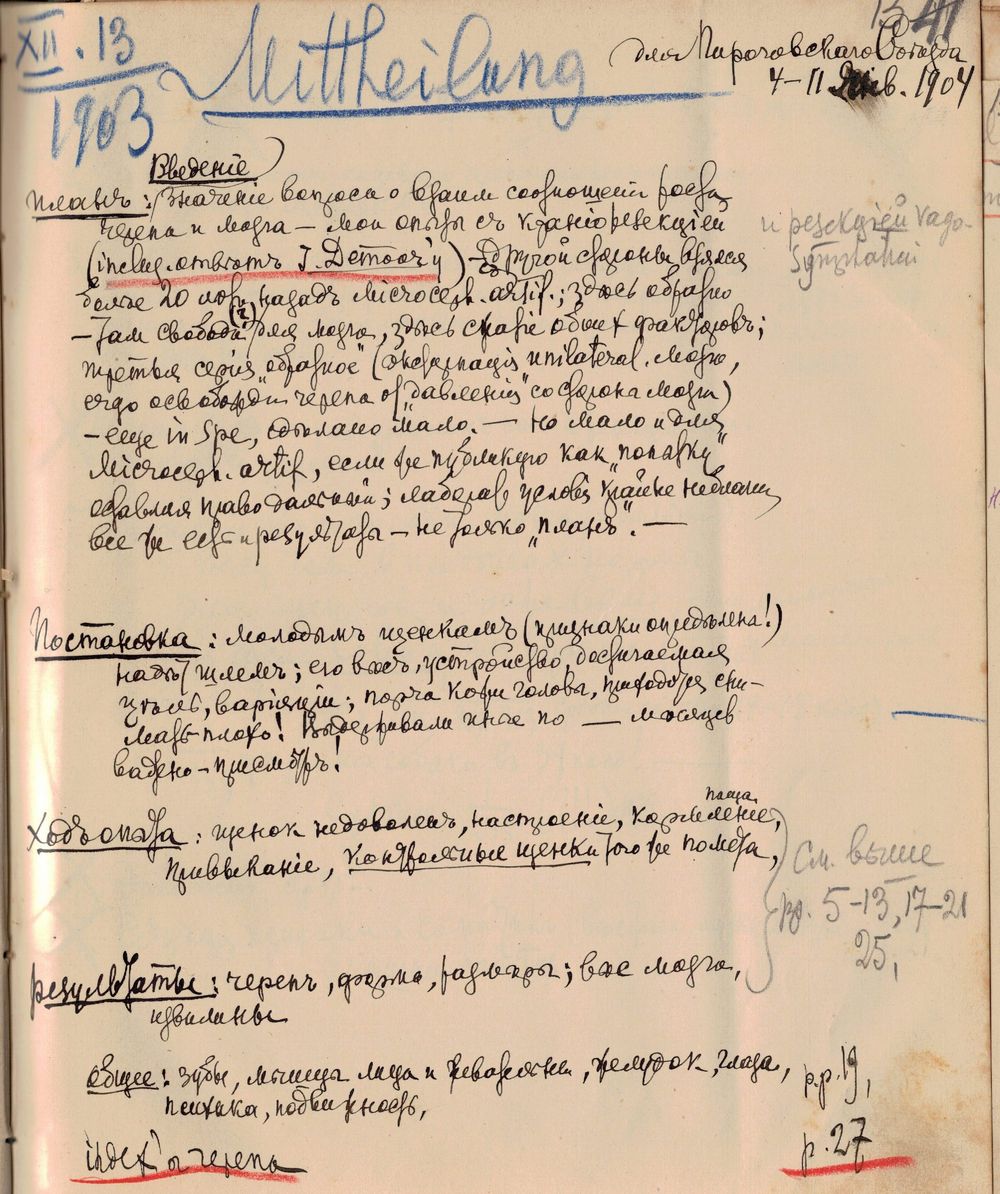 XII. 13
1903
Mittheilung
для Пироговскаго Съѣзда
4–11 Янв. 1904
Введеніе
планъ: Значеніе вопроса о взаим соотношеніи роста
черепа и мозга — мои опыты съ краніорезекціей
и резекціей vago-
sympathici
(includ. отвѣтъ J. Demoor'у) — съ другой стороны
болѣе 20 лѣт назадъ Microceph. artif.; здѣсь обратно
— там свобода (?) для мозга, здѣсь сжатіе обоих факторовъ;
третья серія „обратное" (экстирпація unilateral. мозга,
ergo освобожден черепа от „давленія" со стороны мозга)
— еще in Spe, сдѣлано мало. — Но мало и для
Microceph. artif., если же публикую как
оставляя право дальнѣй; условія крайне неблагоп
все же есть и результаты — не только „планъ". —
Постановка: молодымъ щенкамъ (признаки опредѣлена!)
надѣт шлем; его вѣсъ, устройство, достигаемая
цѣль, варіаціи; порча кожи головы, приходится сни-
мать плохо! Выдерживали иные по — мѣсяцев
важно – присмотръ!
Ходъ опыта: щенок недоволенъ, настроеніе, кормленіе,
пища
Привыканіе, контрольные щенки того же помета,
См. выше
pp. 5–13, 17–21
25,
результаты: черепъ, форма, размѣры; вѣс мозга,
извилины
общее: зубы, мышцы лица и жевательн, желудок, глаза,
психика, подвижность,
p.p. 19,
index'ы черепа
p. 27